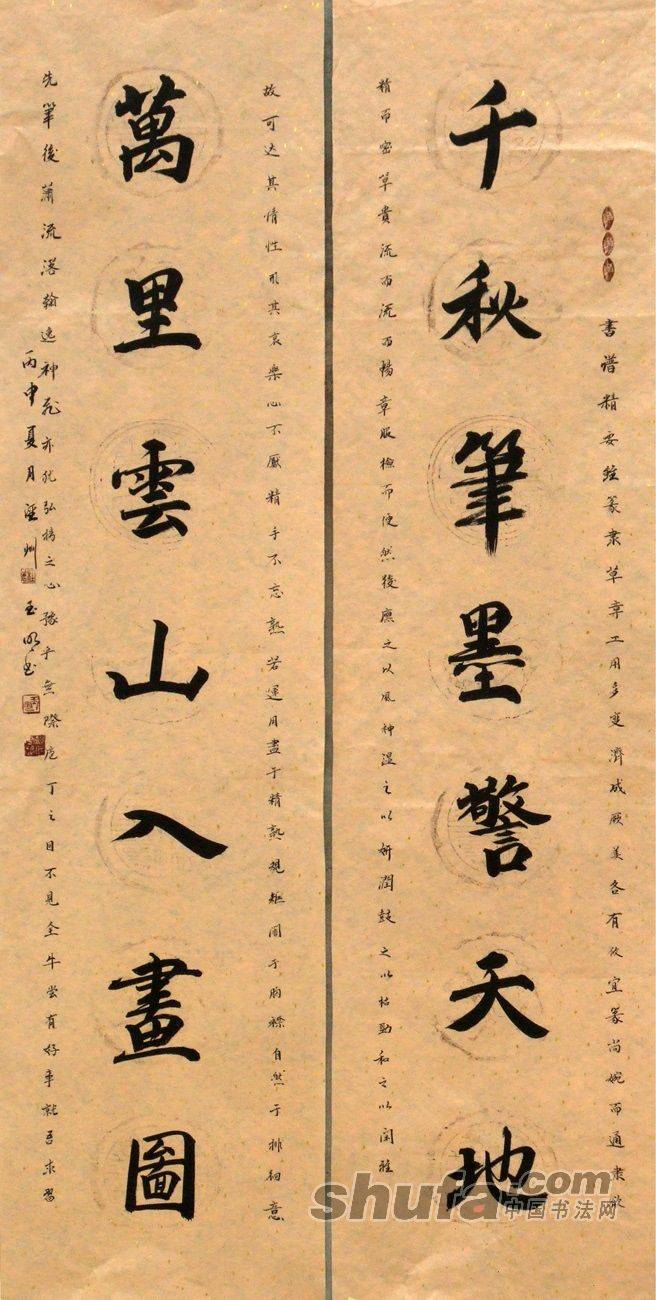 書谱精要雖篆隶草章工用多变濟成厥美各有攸宜篆尚婉而通隶欲
千秋筆墨警天地
精而密草貴流而流而暢章服檢而便然後應之以風神温之以妍潤鼓之以枯勁和之以闲雅
故可达其情性形其哀樂心不厭精手不忘熟若運用盡于精熟規矩闇于胸襟自然于排徊意
萬里雲山入畫圖
先筆後瀟流落翰逸神飛亦猶弘楊之心豫乎無際庖丁之目不見全牛尝有好事就吾求習
丙申夏月涇州玉明书
shufa.com
中国书法网